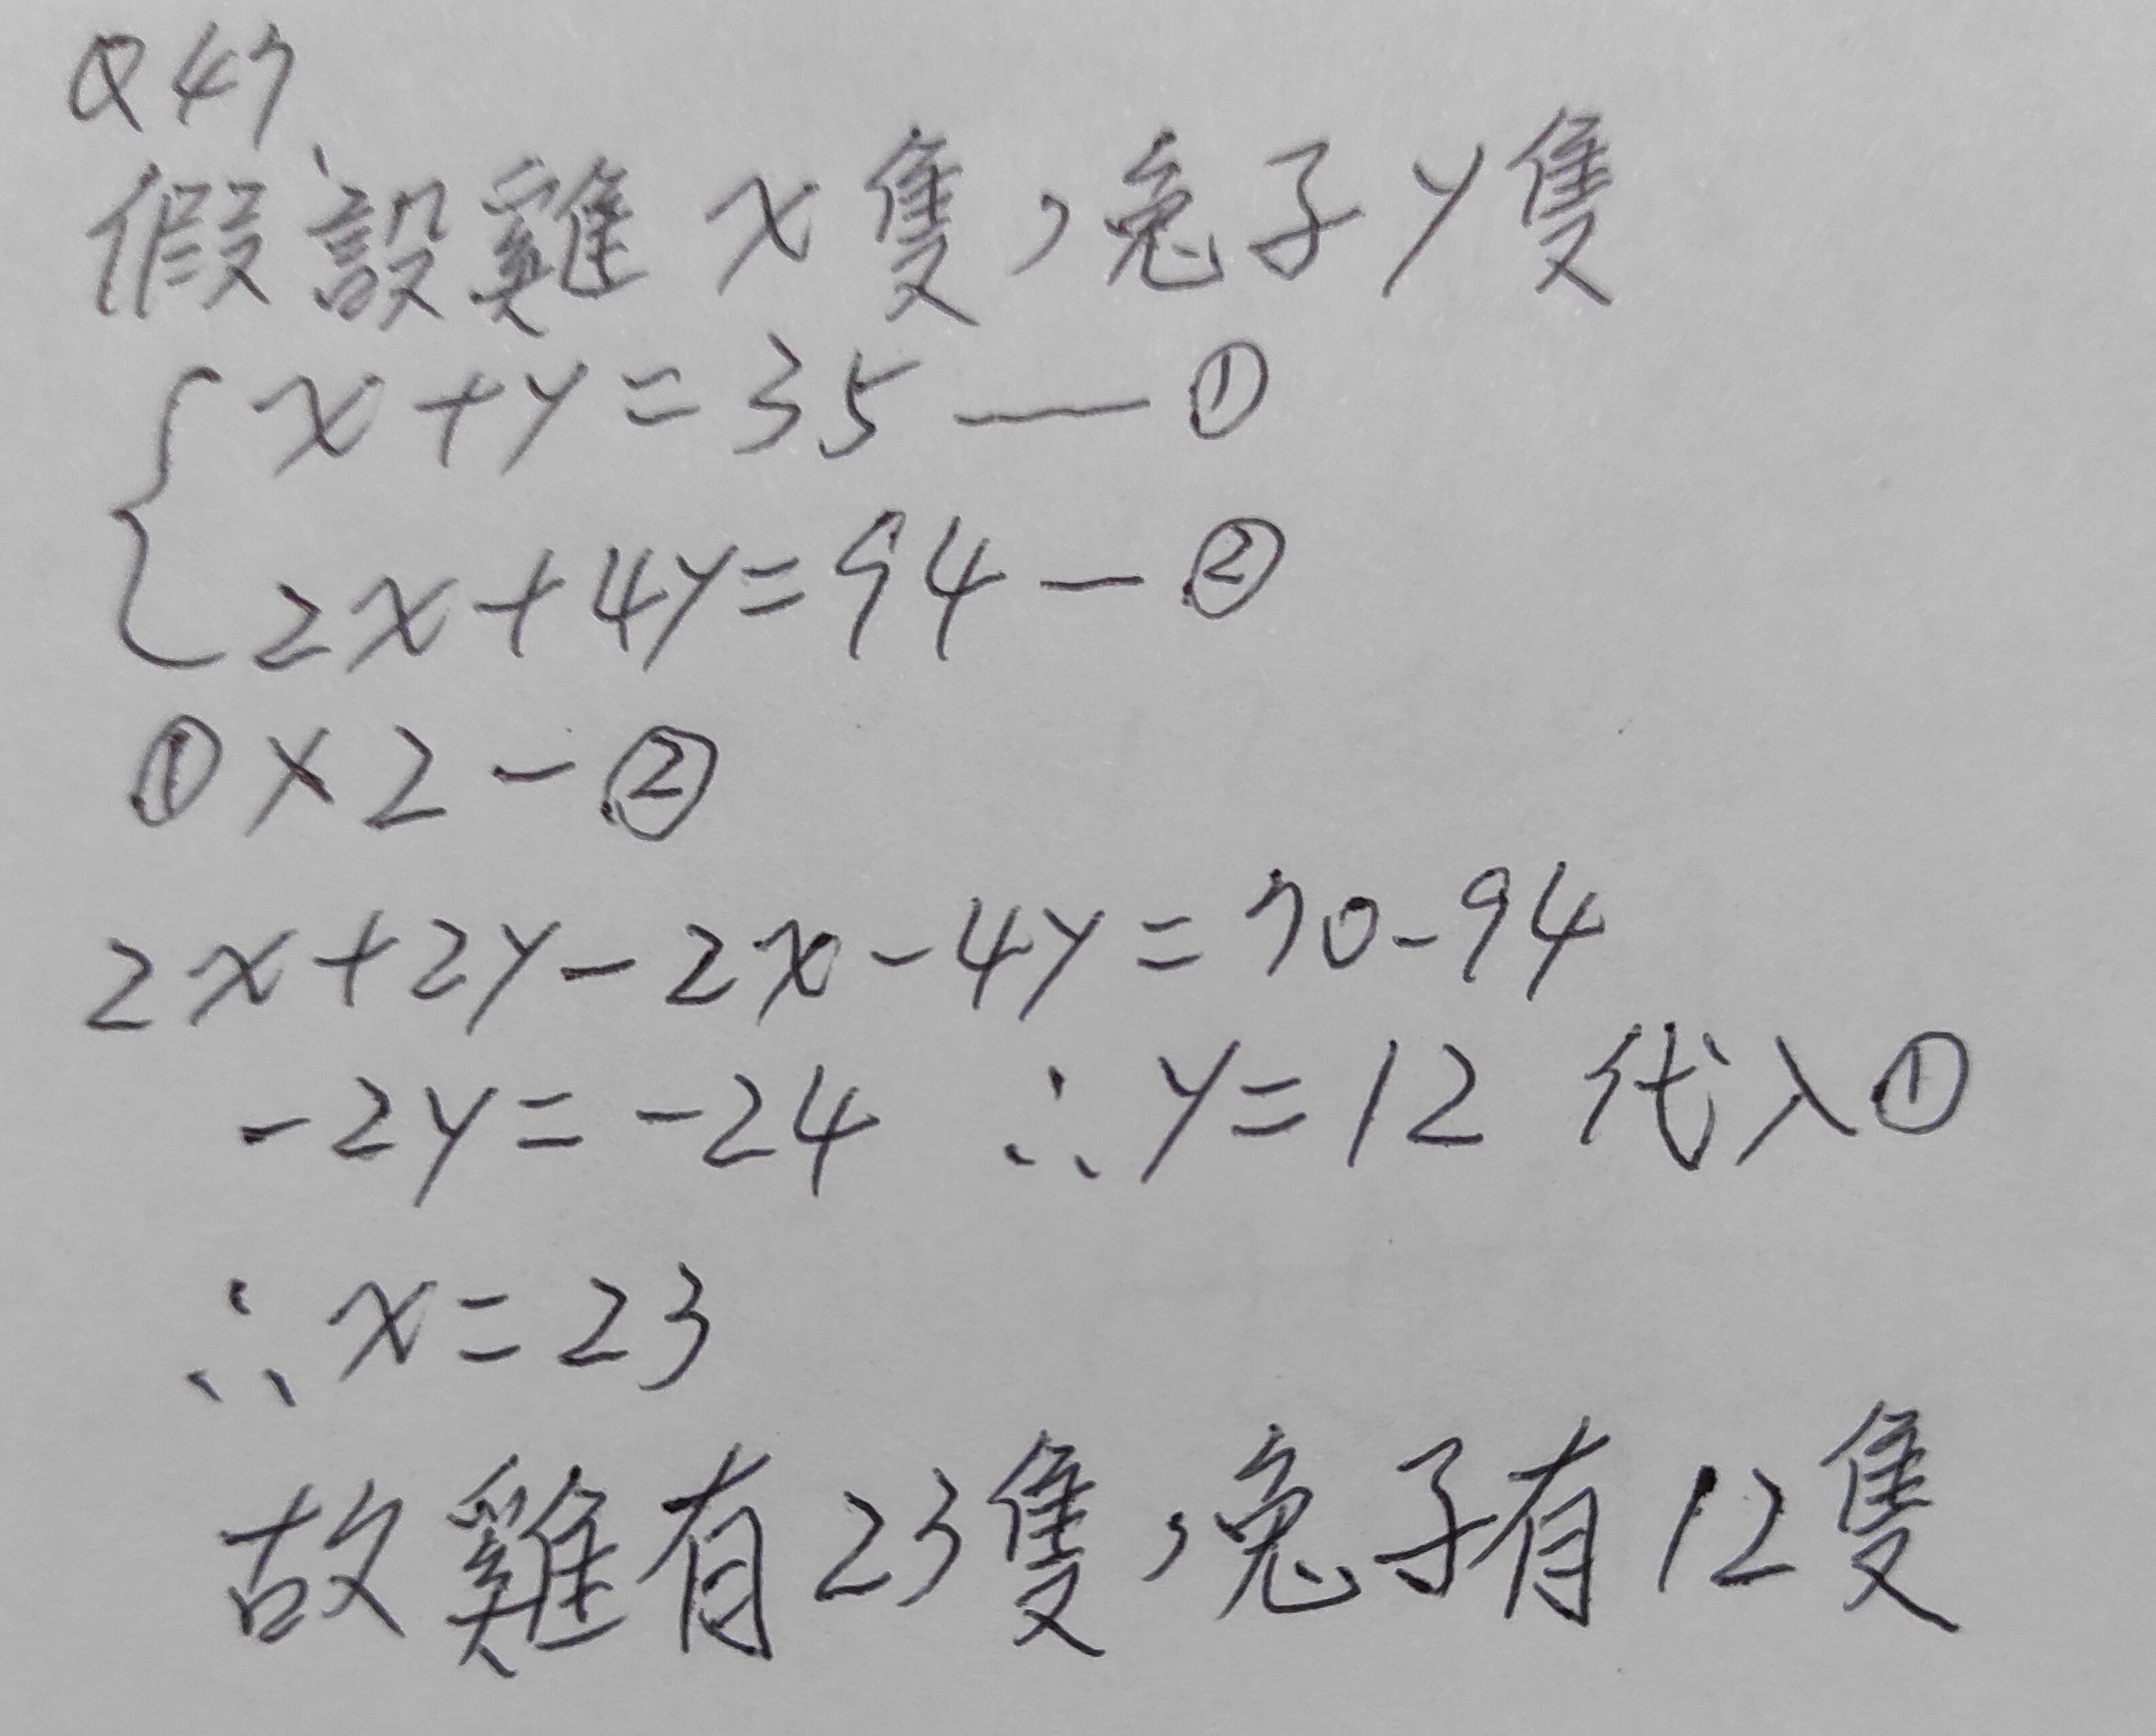 Q47
假設雞x隻,兔子y隻
x+y=35—①
2x+4y=94—②
①×2-②
2x+2y-2x-4y=70-94
-2y=-24 ∴y=12 代入①
∴x=23
故雞有23隻,兔子有12隻